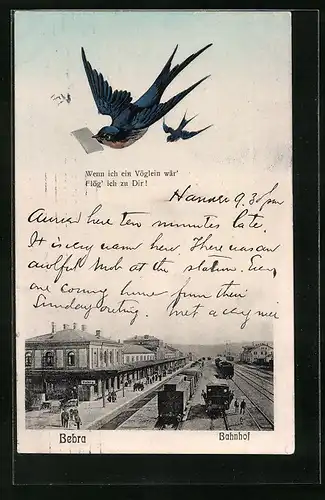 Wenn ich ein Vöglein wär'
Flög' ich zu Dir!
Hanover 9.30 pm
here ten minutes late.
It is very warm here. There was an
awful mob at the station. Every
one coming home from their
Sunday outing. Met a
Bebra
Bahnhof